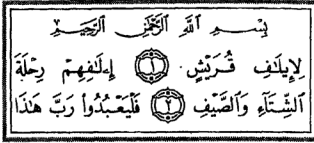 بِسْمِ ٱللَّهِ ٱلرَّحْمَٰنِ ٱلرَّحِيمِ
لِإِيلَٰفِ قُرَيْشٍ ۝١ إِۦلَٰفِهِمْ رِحْلَةَ
ٱلشِّتَآءِ وَٱلصَّيْفِ ۝٢ فَلْيَعْبُدُوا۟ رَبَّ هَٰذَا